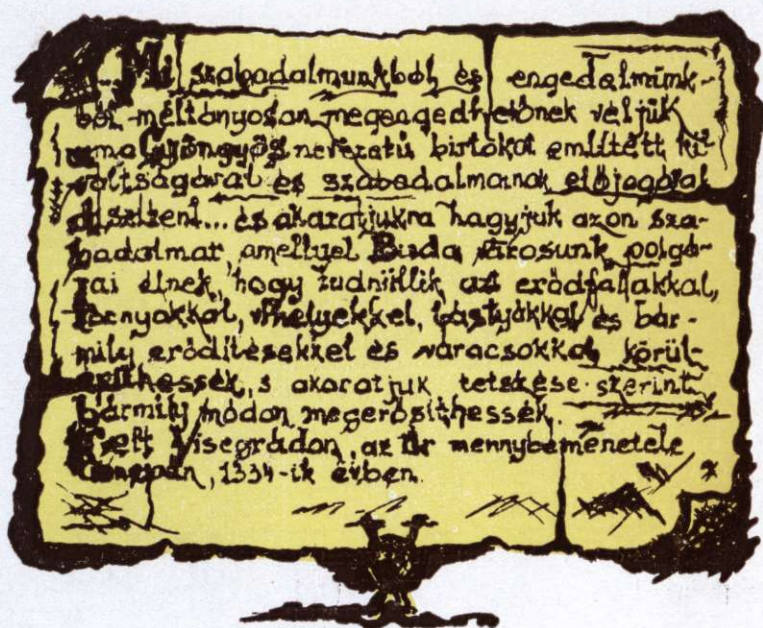 ...Mi szabadalmunkból és engedelmünk-
ből méltányosan megengedhetőnek véljük
ama Gyöngyös nevezetű birtokot említett ki-
váltságával és szabadalmainak előjogával
díszíteni... és akaratjukra hagyjuk azon sza-
badalmat, amellyel Buda városunk polgá-
rai élnek, hogy tudniillik azt erődfalakkal,
tornyokkal, védhelyekkel, bástyákkal és bár-
mily erődítésekkel és váracsokkal körül-
keríthessék, s akaratjuk tetszése szerint
bármily módon megerősíthessék.
Kelt Visegrádon, az Úr mennybemenetele
ünnepén, 1334-ik évben.